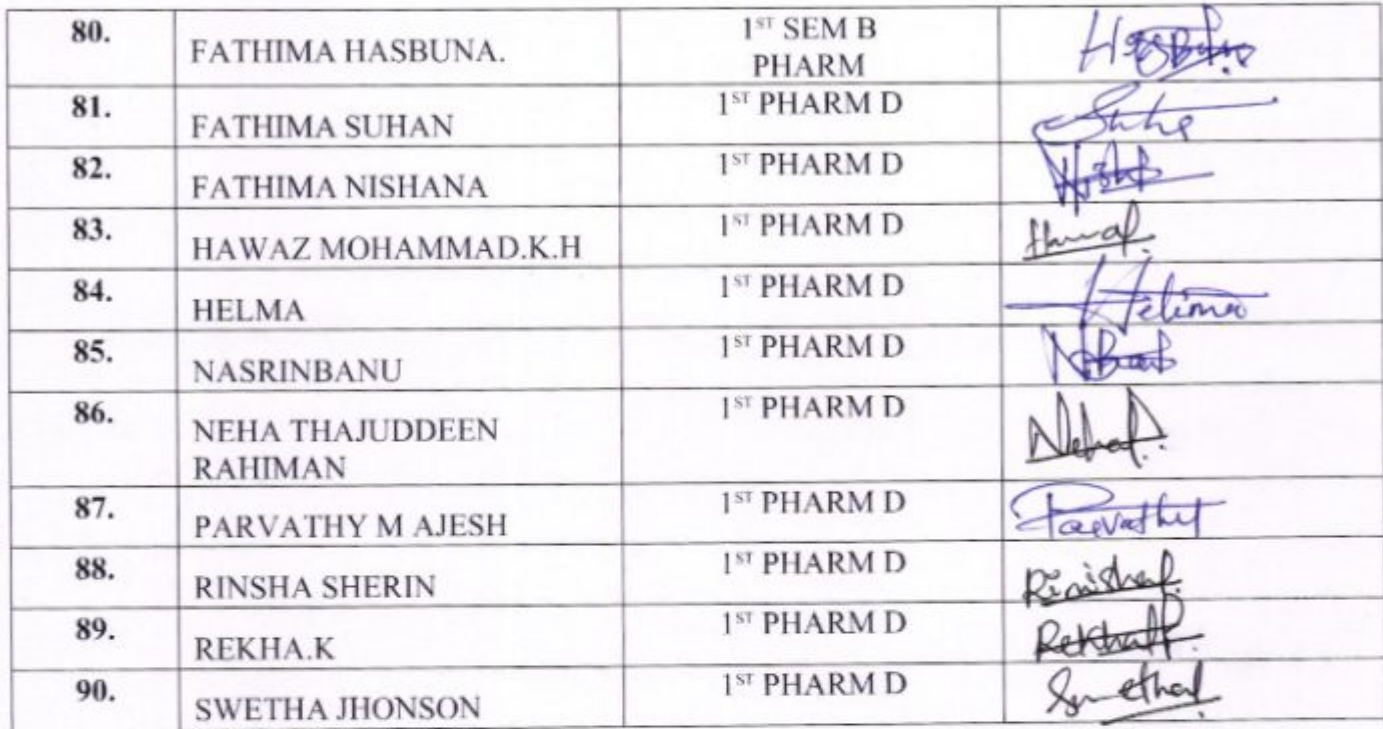 80.
FATHIMA HASBUNA.
1ST SEM B
PHARM
81.
FATHIMA SUHAN
1ST PHARM D
82.
FATHIMA NISHANA
1ST PHARM D
83.
HAWAZ MOHAMMAD.K.H
1ST PHARM D
84.
HELMA
1ST PHARM D
85.
NASRINBANU
1ST PHARM D
86.
NEHA THAJUDDEEN
RAHIMAN
1ST PHARM D
87.
PARVATHY M AJESH
1ST PHARM D
Parvathy
88.
RINSHA SHERIN
1ST PHARM D
89.
REKHA.K
1ST PHARM D
90.
SWETHA JHONSON
1ST PHARM D